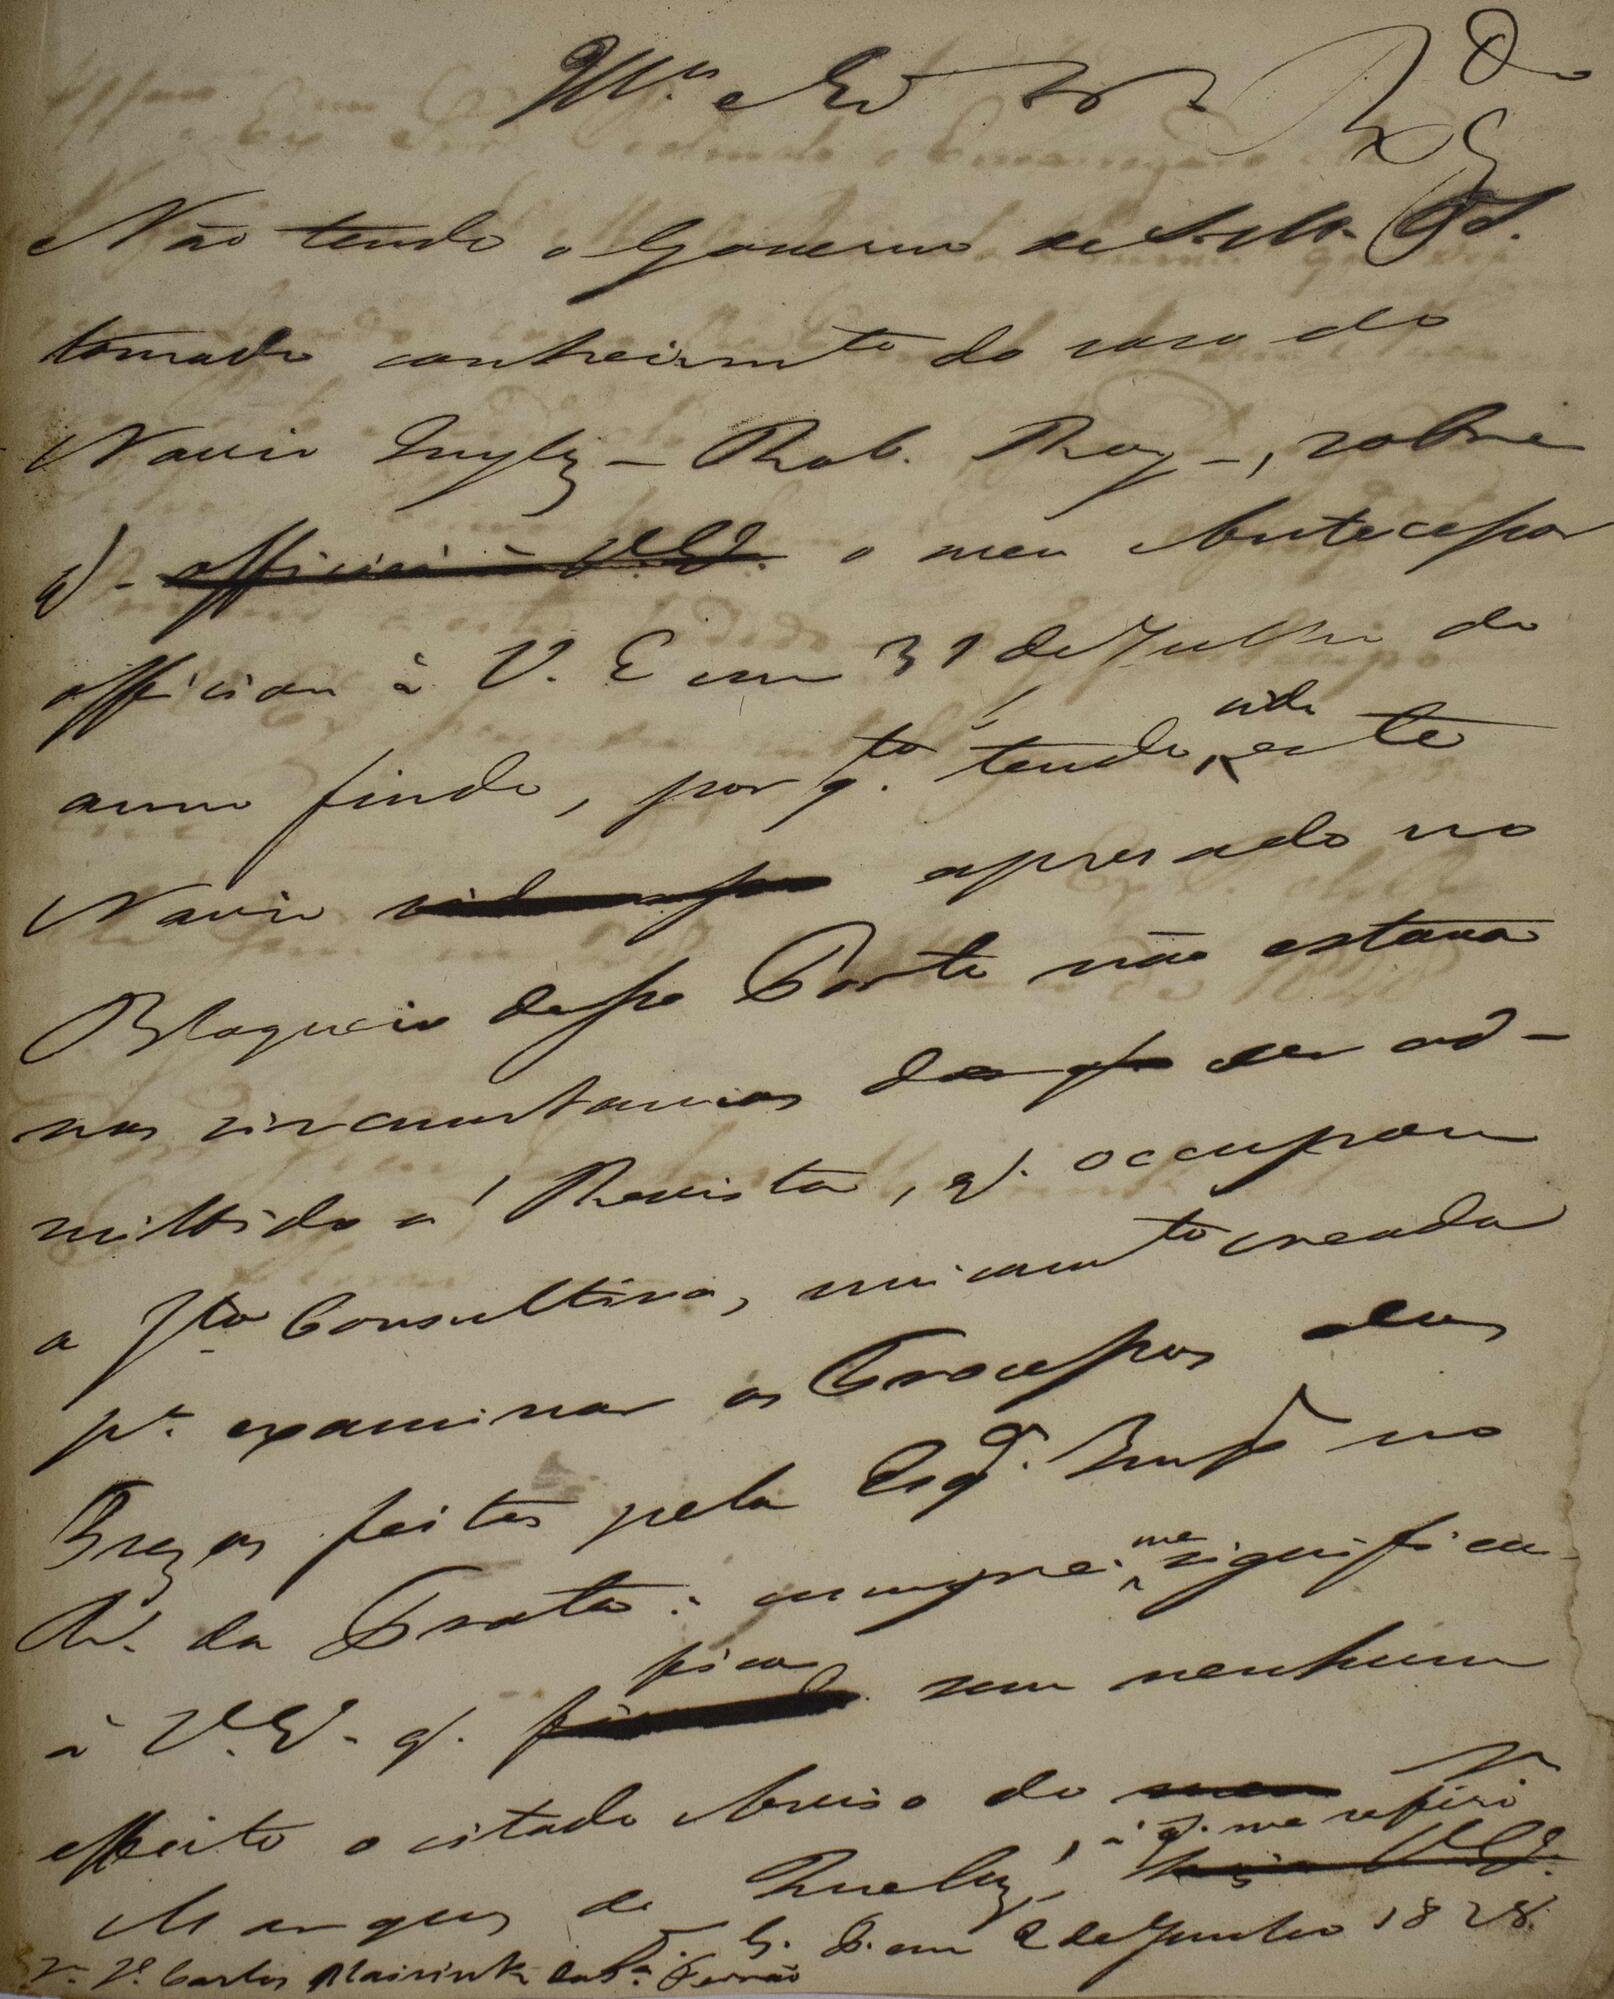 Ill.mo e Ex.mo Snr.
Não tendo o Governo de S. M. O I.
tomado conhecim.to do caso do
Navio Inglez – Rob. Roy –, sobre
q. – officiei à V. E. o meu Antecessor
officiou à V. E em 31 de Julho do
anno findo, por q.to tendo sido este
Navio apresado no
Bloqueio desse Porto não estava
nas circunstancias de ser ad-
mittido a' Revista, q. occupou
a J.ta Consultiva, unicam.te creada
p.a examinar os Processos das
Prezas feitas pela Esq.a Imp.l no
R. da Prata: cumpre-me significar
à V. E. q. fica sem nenhum
effeito o citado Aviso do
Marquez de Queluz, à q. me refiro
D. G. a V. E. em 2 de Junho 1828.
Carlos Mairink da S.a Ferrão